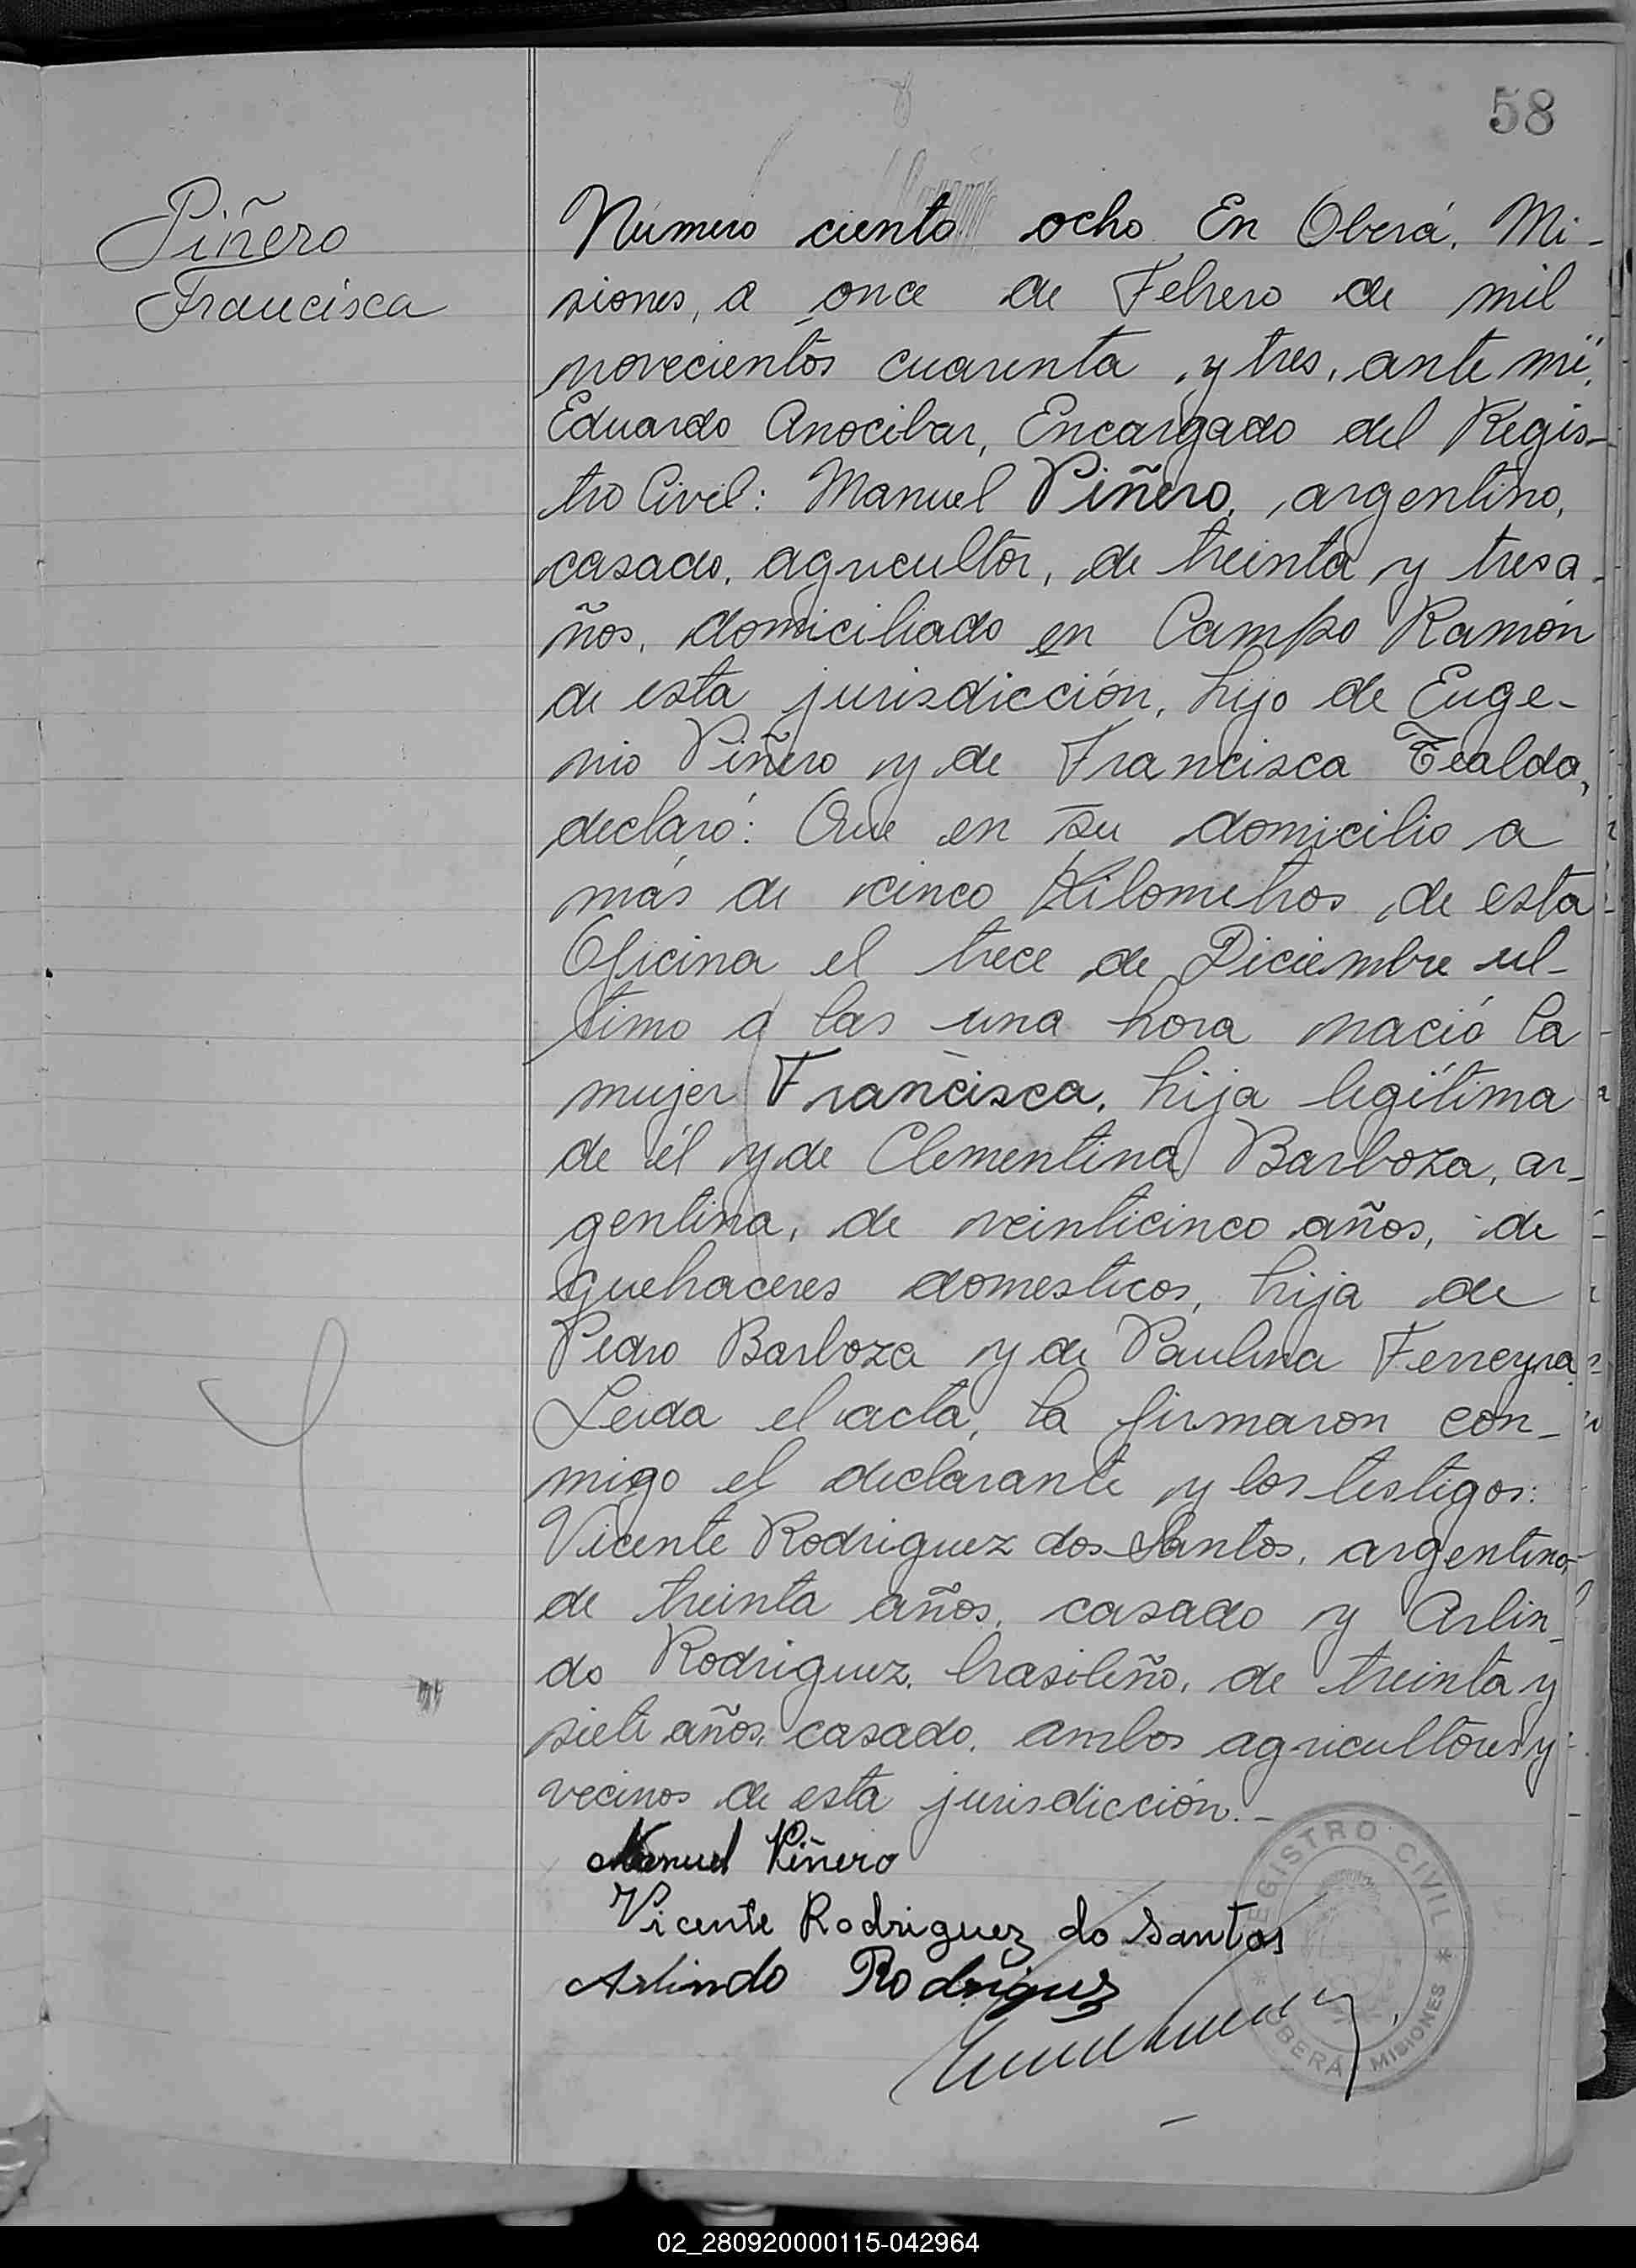 58
Piñero
Francisca
Número ciento ocho En Oberá, Mi-
siones, a once de Febrero de mil
novecientos cuarenta y tres, ante mí,
Eduardo Anocibar, Encargado del Regis-
tro Civil: Manuel Piñero, argentino,
casado, agricultor, de treinta y tres a-
ños, domiciliado en Campo Ramón
de esta jurisdicción, hijo de Euge-
nio Piñero y de Francisca Tealdo,
declaró: Que en su domicilio a
más de cinco Kilometros de esta
Oficina el trece de Diciembre úl-
timo a las una hora nació la
mujer Francisca, hija legítima
de él y de Clementina Barboza, ar-
gentina, de veinticinco años, de
quehaceres domesticos, hija de
Pedro Barboza y de Paulina Ferreyra.
Leida el acta, la firmaron con-
migo el declarante y los testigos:
Vicente Rodriguez dos Santos, argentino,
de treinta años, casado y Arlin-
do Rodriguez, brasileño, de treinta y
siete años, casado, ambos agricultores y
vecinos de esta jurisdicción.-
Manuel Piñero
Vicente Rodriguez do Santos
Arlindo Rodriguez
REGISTRO CIVIL
* OBERÁ MISIONES *
02_280920000115-042964